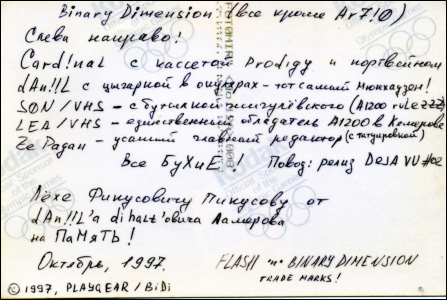 Binary Dimension (все кроме Ar7!0)
Слева направо!
Card!naL с кассетой Prodigy и портвейном
dAn!!L с цыгаркой в окулярах - тот самый Мюнхаузен!
SØN/VHS - с бутылкой жигулёвского (A1200 ruLezzz)
LEA/VHS - единственный обледатель A1200 в Кемерове
Ze Радан - усатый главный редактор (с татуировкой)
Все БуХиЕ! Повод: релиз DeJA VU #02
Лёхе Фикусовичу Пикусову от
dAn!!L'а dihaLt'овича Ламерова
на ПаМяТЬ!
Октябрь, 1997.
FLASH "n" BINARY DIMENSION
TRADE MARKS!
© 1997, PLAYGEAR / BiDi